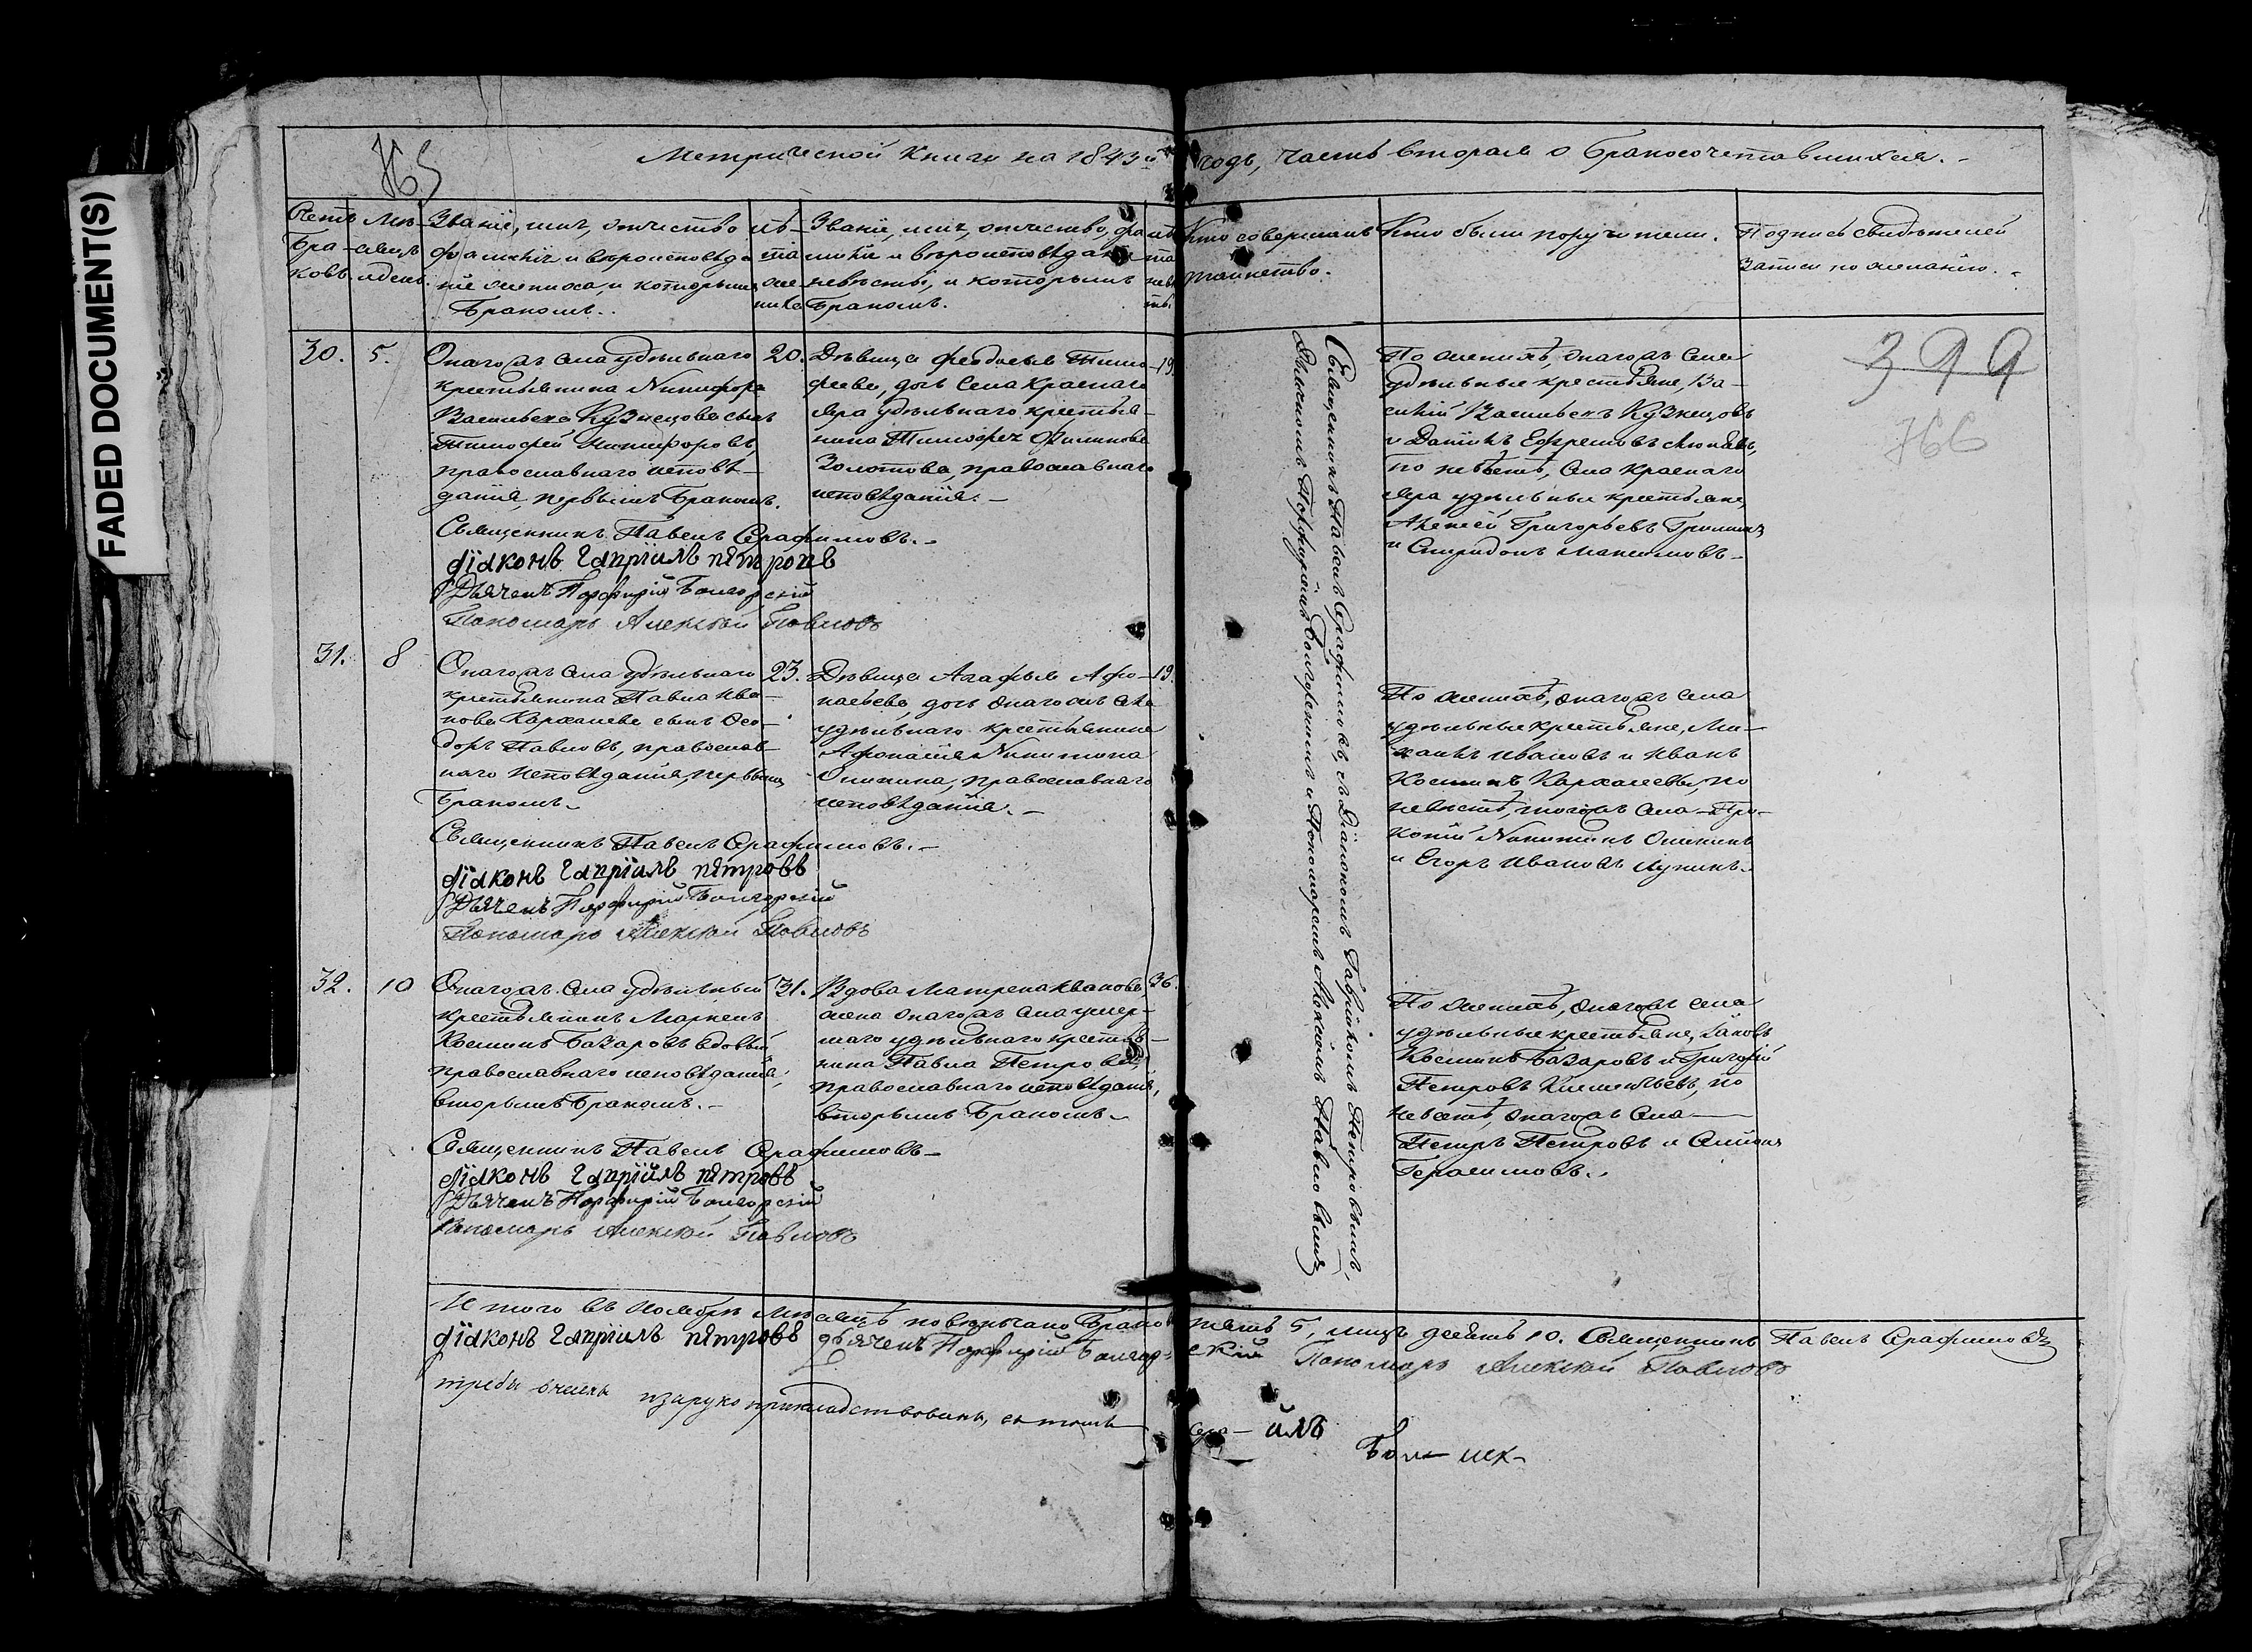 FADED DOCUMENT(S)
765
Метрической Книги на 1843й годъ, часть вторая о бракосочетавшихся.
Счетъ браковъ
Мѣсяцъ и день.
Званіе, имя, отчество
фамилія и вѣроисповѣда
ніе жениха, и которымъ
бракомъ.
Лѣта жениха
Званіе, имя, отчество, фа
милія и вѣроисповѣданіе
невѣсты, и которымъ
бракомъ.
Лѣта невѣсты.
Кто совершалъ
таинство.
Кто были поручители.
Подпись свидѣтелей
записи по желанію.
30. 5.
Онагожъ села удѣльнаго
крестьянина Никифора
Васильева Кузнецова сынъ
Тимофей Никифоровъ,
православнаго исповѣ-
данія, первымъ бракомъ.
20.
Дѣвица Феодосья Тимо-
феева, дочь села Краснаго
яра удѣльнаго крестья-
нина Тимофея Филипова
Золотова, православнаго
исповѣданія.
19.
По женихѣ, онагожъ села
удѣльные крестьяне, Ва-
силій Васильевъ Кузнецовъ
и Даніилъ Ефремовъ
по невѣстѣ, села Краснаго
яра удѣльные крестьяне,
Алексѣй Григорьевъ
и Спиридонъ Максимовъ
399
766
Священникъ Павелъ Серафимовъ.
діаконъ Гавріилъ Петровъ
Дьячекъ Порфирій Болгорскій
Пономарь Алексѣй Павловъ
31. 8
Онагожъ села удѣльнаго
крестьянина Павла Ива-
нова Кархалева сынъ Ѳео-
доръ Павловъ, православ-
наго исповѣданія, первымъ
бракомъ.
23.
Дѣвица Агафья Афо-
насьева, дочь онагожъ села
удѣльнаго крестьянина
Афонасія Никитина
Опикина, православнаго
исповѣданія.
19.
По женихѣ, онагожъ села
удѣльные крестьяне, Ми-
хаилъ Ивановъ и Иванъ
Косминъ Кархалевы, по
невѣстѣ, тогожъ села Про-
копій Никитинъ Опикинъ
и Егоръ Ивановъ Лунинъ.
Священникъ Павелъ Серафимовъ.
діаконъ Гавріилъ Петровъ
Дьячекъ Порфирій Болгорскій
Пономарь Алексѣй Павловъ
32. 10
Онагожъ села удѣльный
крестьянинъ Маркелъ
Косминъ Базаровъ вдовый
православнаго исповѣданія,
вторымъ бракомъ.
31.
Вдова Матрена Иванова
жена онагожъ села умер-
шаго удѣльнаго крестья-
нина Павла Петрова
православнаго исповѣданія,
вторымъ бракомъ.
36.
По женихѣ, онагожъ села
удѣльные крестьяне, Іаковъ
Косминъ Базаровъ и Григорій
Петровъ по
невѣстѣ, онагожъ села
Петръ Петровъ и
Герасимовъ.
Священникъ Павелъ Серафимовъ
діаконъ Гавріилъ Петровъ
Дьячекъ Порфирій Болгорскій
Пономарь Алексѣй Павловъ
Священникъ Павелъ Серафимовъ, съ Діакономъ Гавріиломъ Петровымъ,
Дьячкомъ Порфиріемъ Болгорскимъ и Пономаремъ Алексѣемъ Павловымъ
Итого въ ноябрѣ мѣсяцѣ повѣнчано браковъ пять 5, лицъ десять 10. Священникъ Павелъ Серафимовъ
діаконъ Гавріилъ Петровъ дьячекъ Порфирій Болгорскій Пономарь Алексѣй Павловъ
въ томъ
Сера- илъ
Бол- лек-